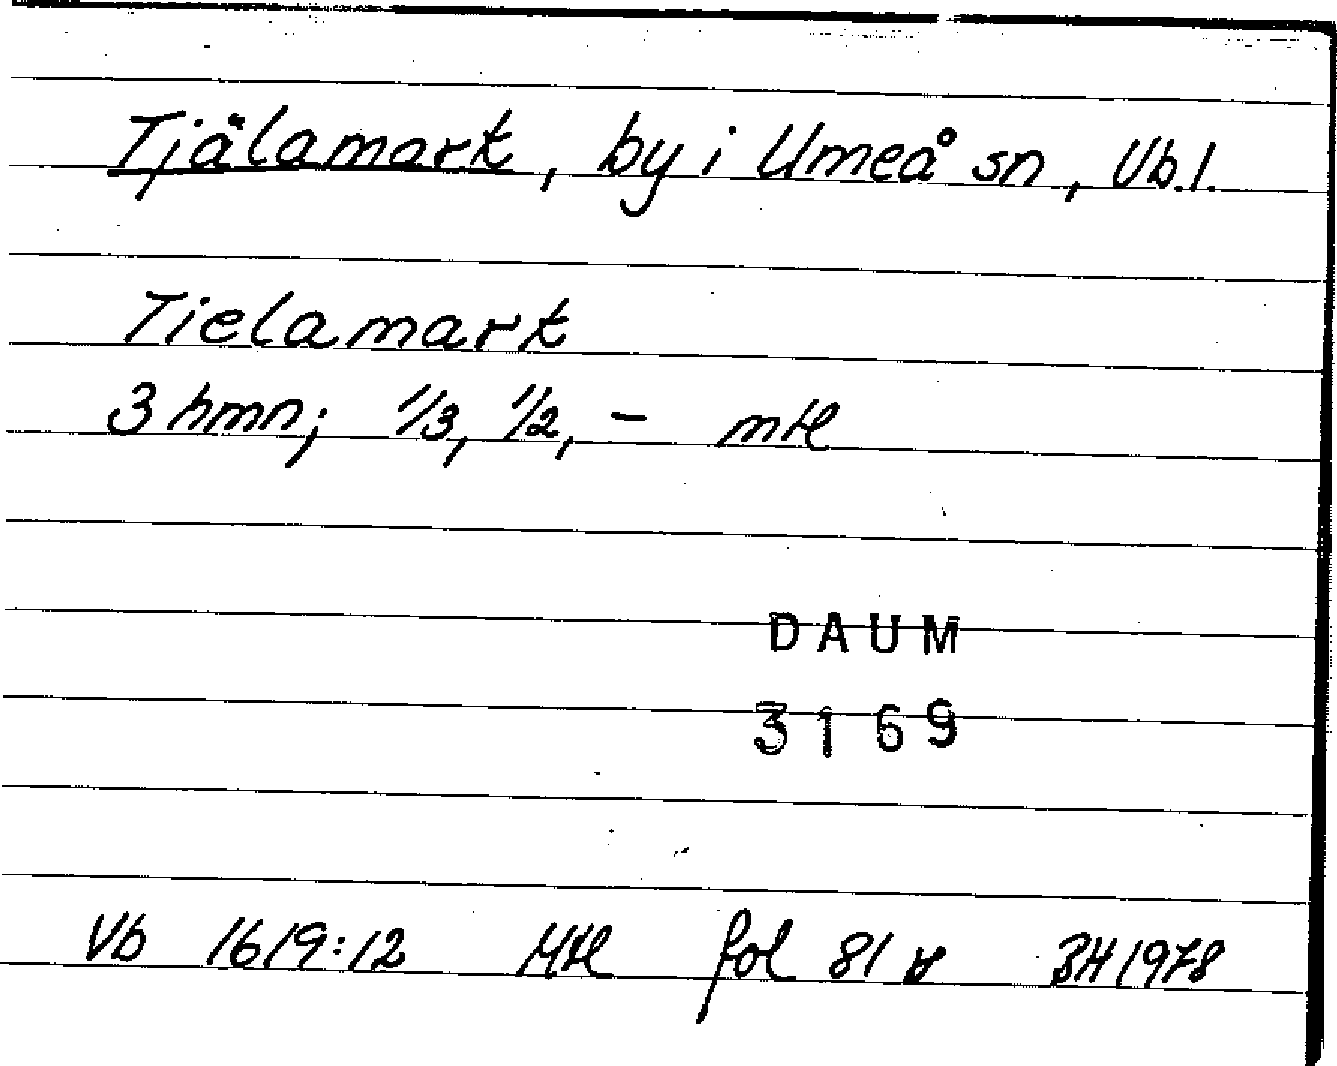 Tjälamark, by i Umeå sn, Vb.l.
Tielamark
3 hmn; 1/3, 1/2, - mtl
DAUM
3169
Vb 1619:12 Mtl fol 81 v BH 1978